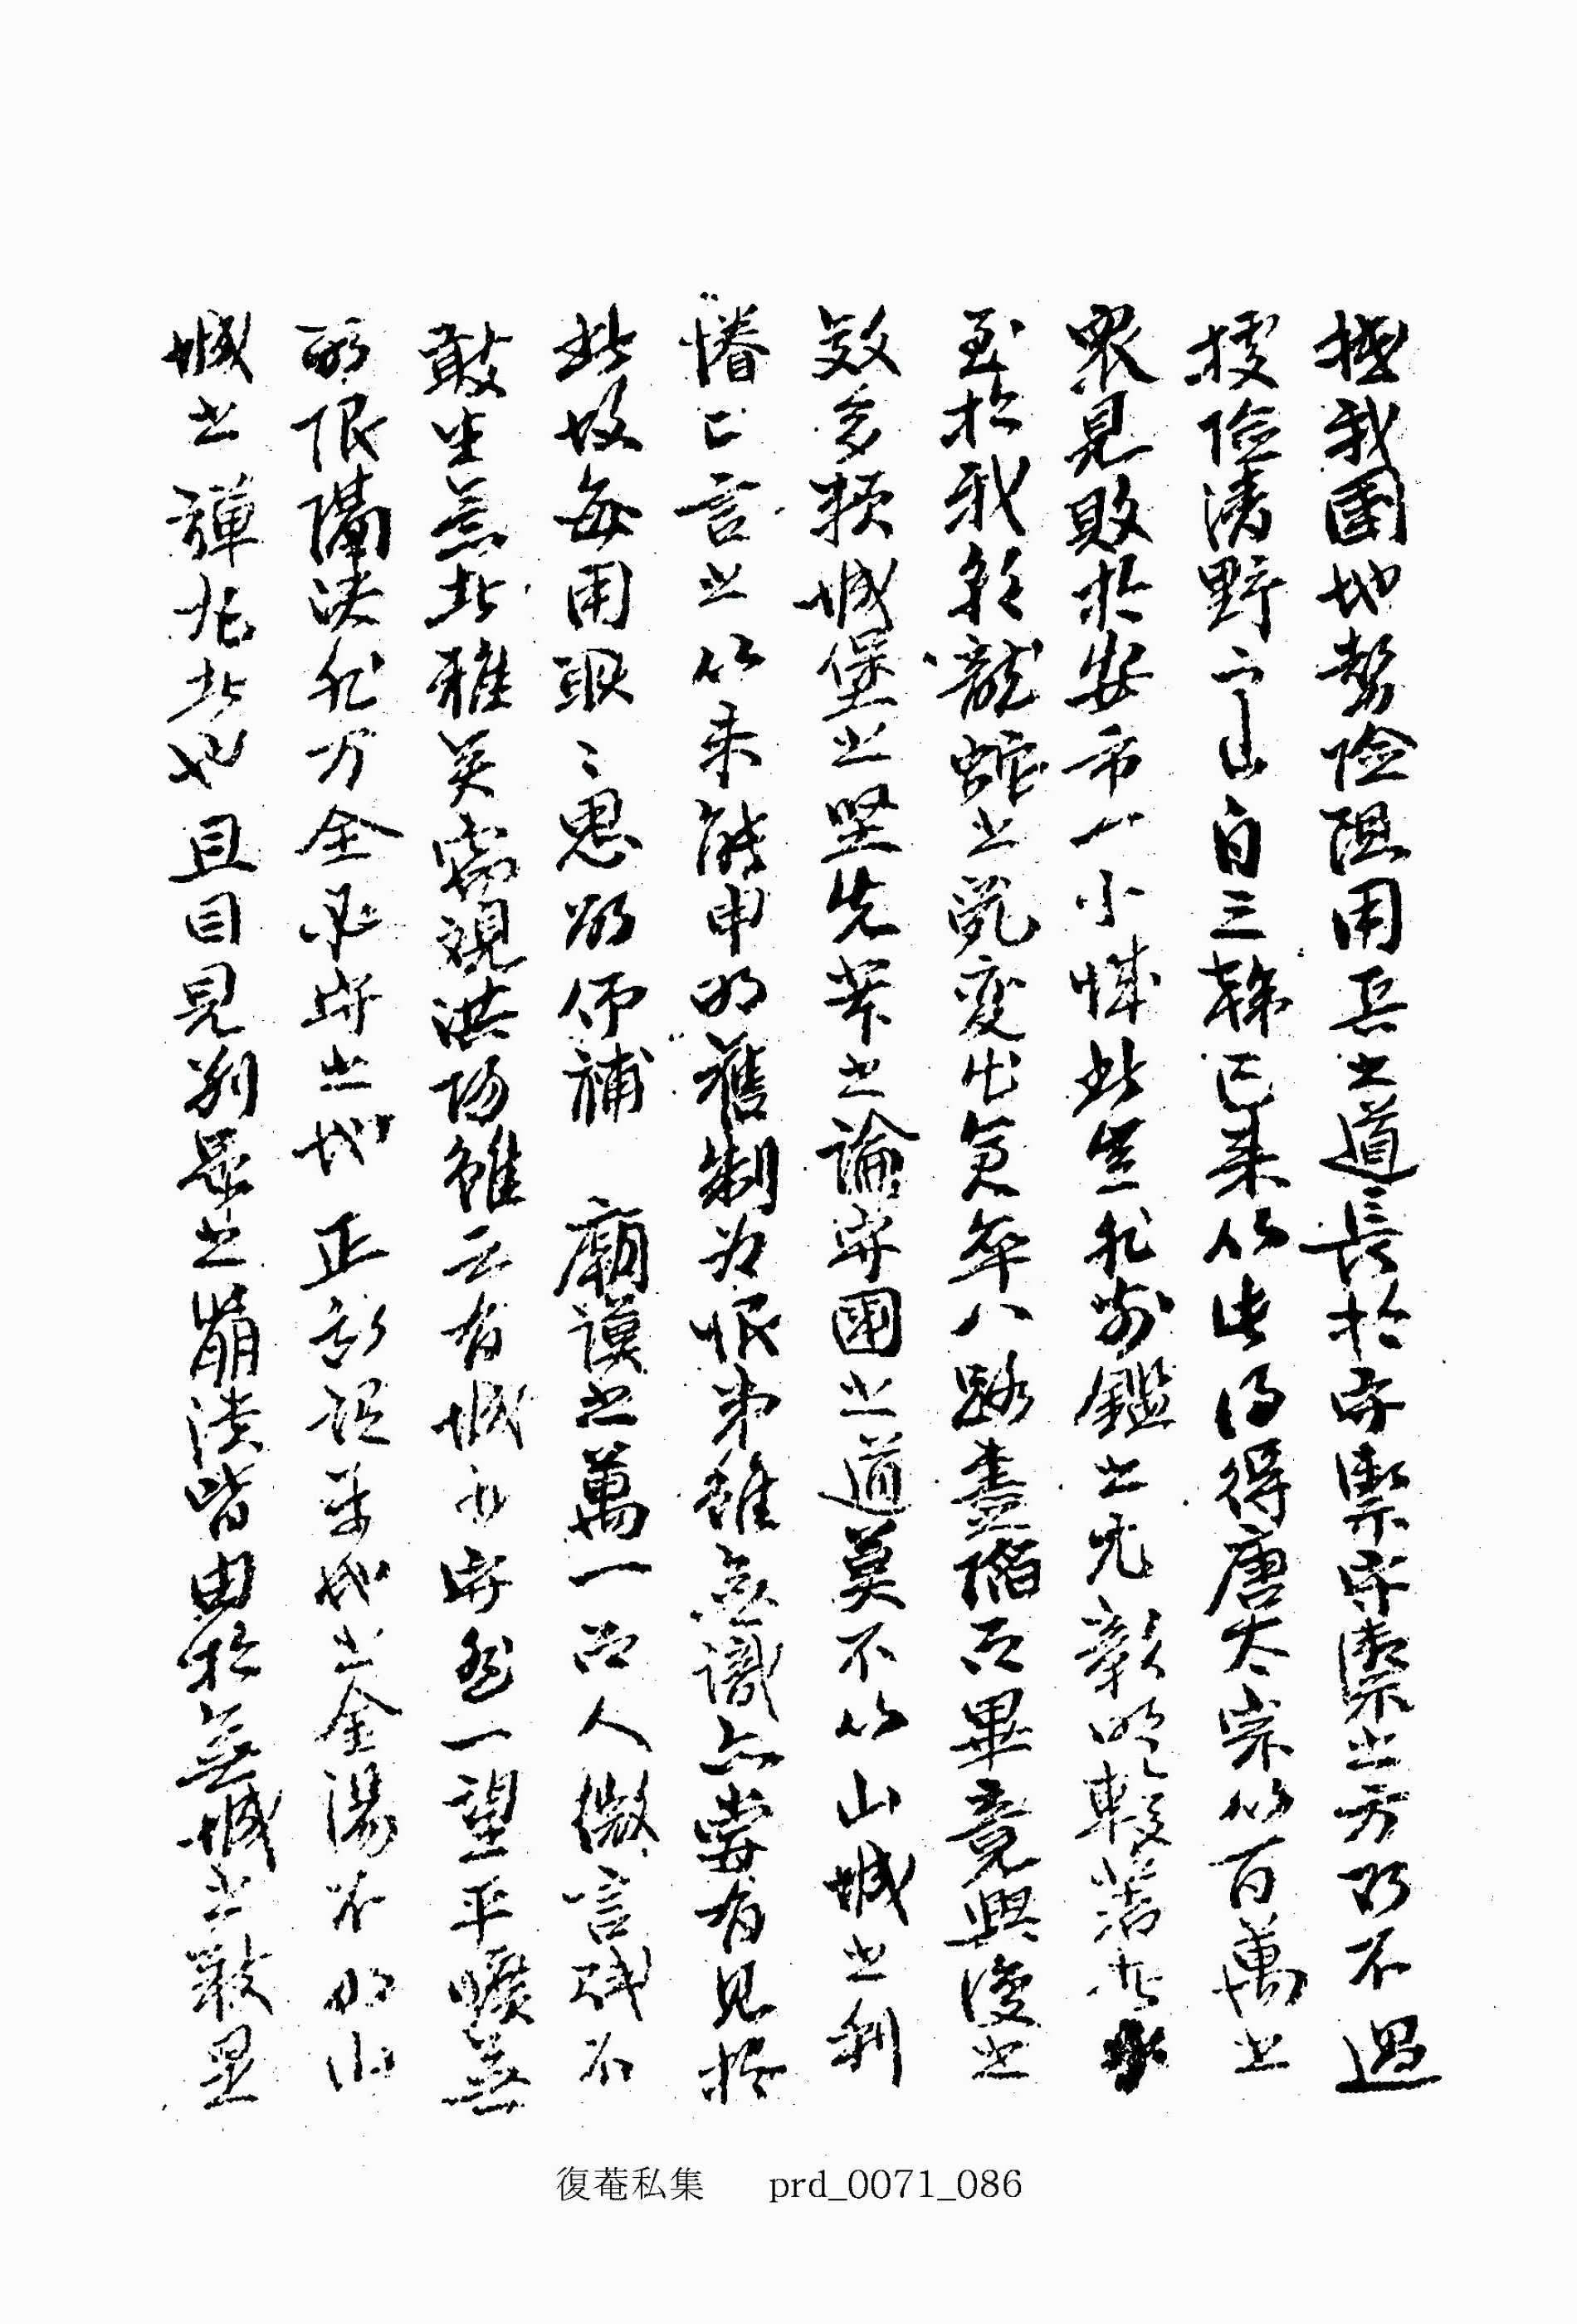 極我國地勢險阻用兵之道長於守禦守禦之方乃不過
據險淸野二﹁山自三韓已來以此得得唐太宗以百萬之
衆見敗於安市一小城此豈非前鑑之尤彰明較著者乎
至於我朝龍蛇之乱變出負年八路盡陷而畢竟興復之
效多賴城堡之堅先輩之論守國之道莫不以山城之利
惓〻言之以未能申明舊制爲恨弟雖無識亦嘗有見於
此故每用耿〻思欲仰補 廟謨之萬一而人微言賤不
敢
坐此雖英
視洪陽雖云有城可守然一望平曠無
所限隔決非万全必守之地正所謂
之金湯不如山
城之
非此也且目見列邑之崩潰皆由於無城之致是
復菴私集 prd_0071_086